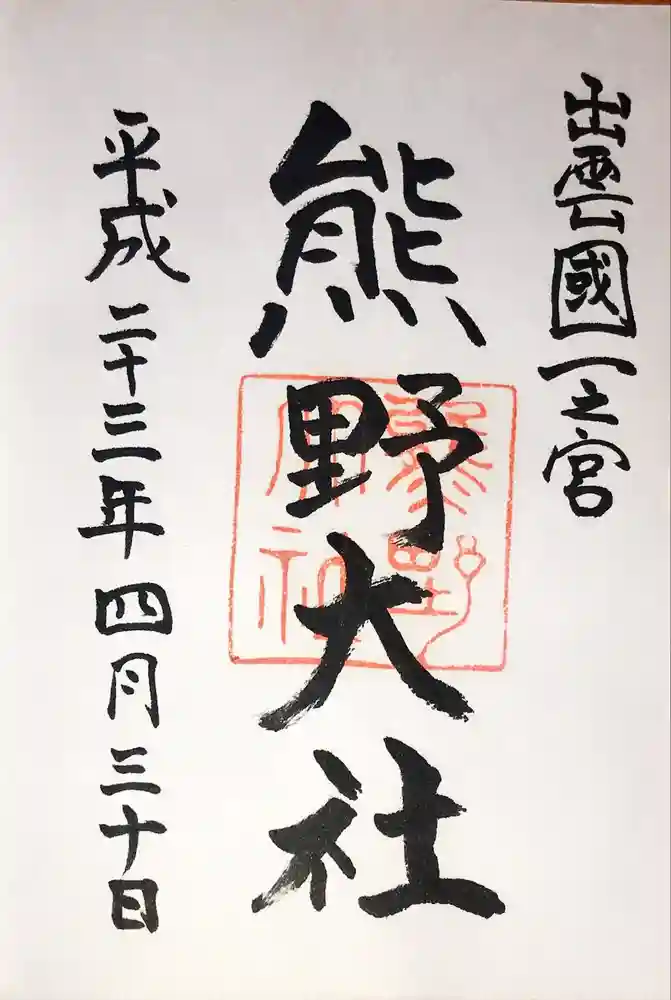 出雲國一之宮
熊野大社
平成二十三年四月三十日
熊野
宮社